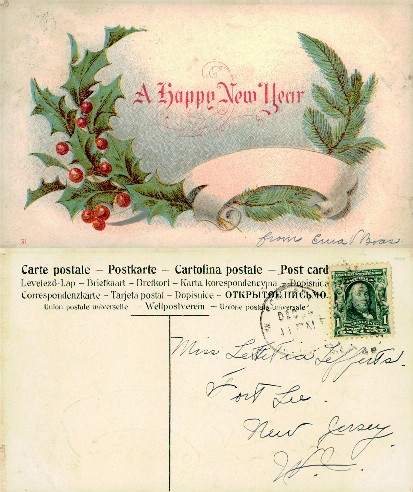 A Happy New Year
from Erna Boas
Carte postale – Postkarte – Cartolina postale – Post card
Levelező-Lap – Briefkaart – Brefkort – Karta korespondencyjna – Dopisnica
Correspondenzkarte – Tarjeta postal – Dopisnice – ОТКРЫТОЕ ПИСЬМО.
Union postale universelle — Weltpostverein — Unione postale universale
DEC
Miss Lettitia Lefferts.
Fort Lee
New Jersey